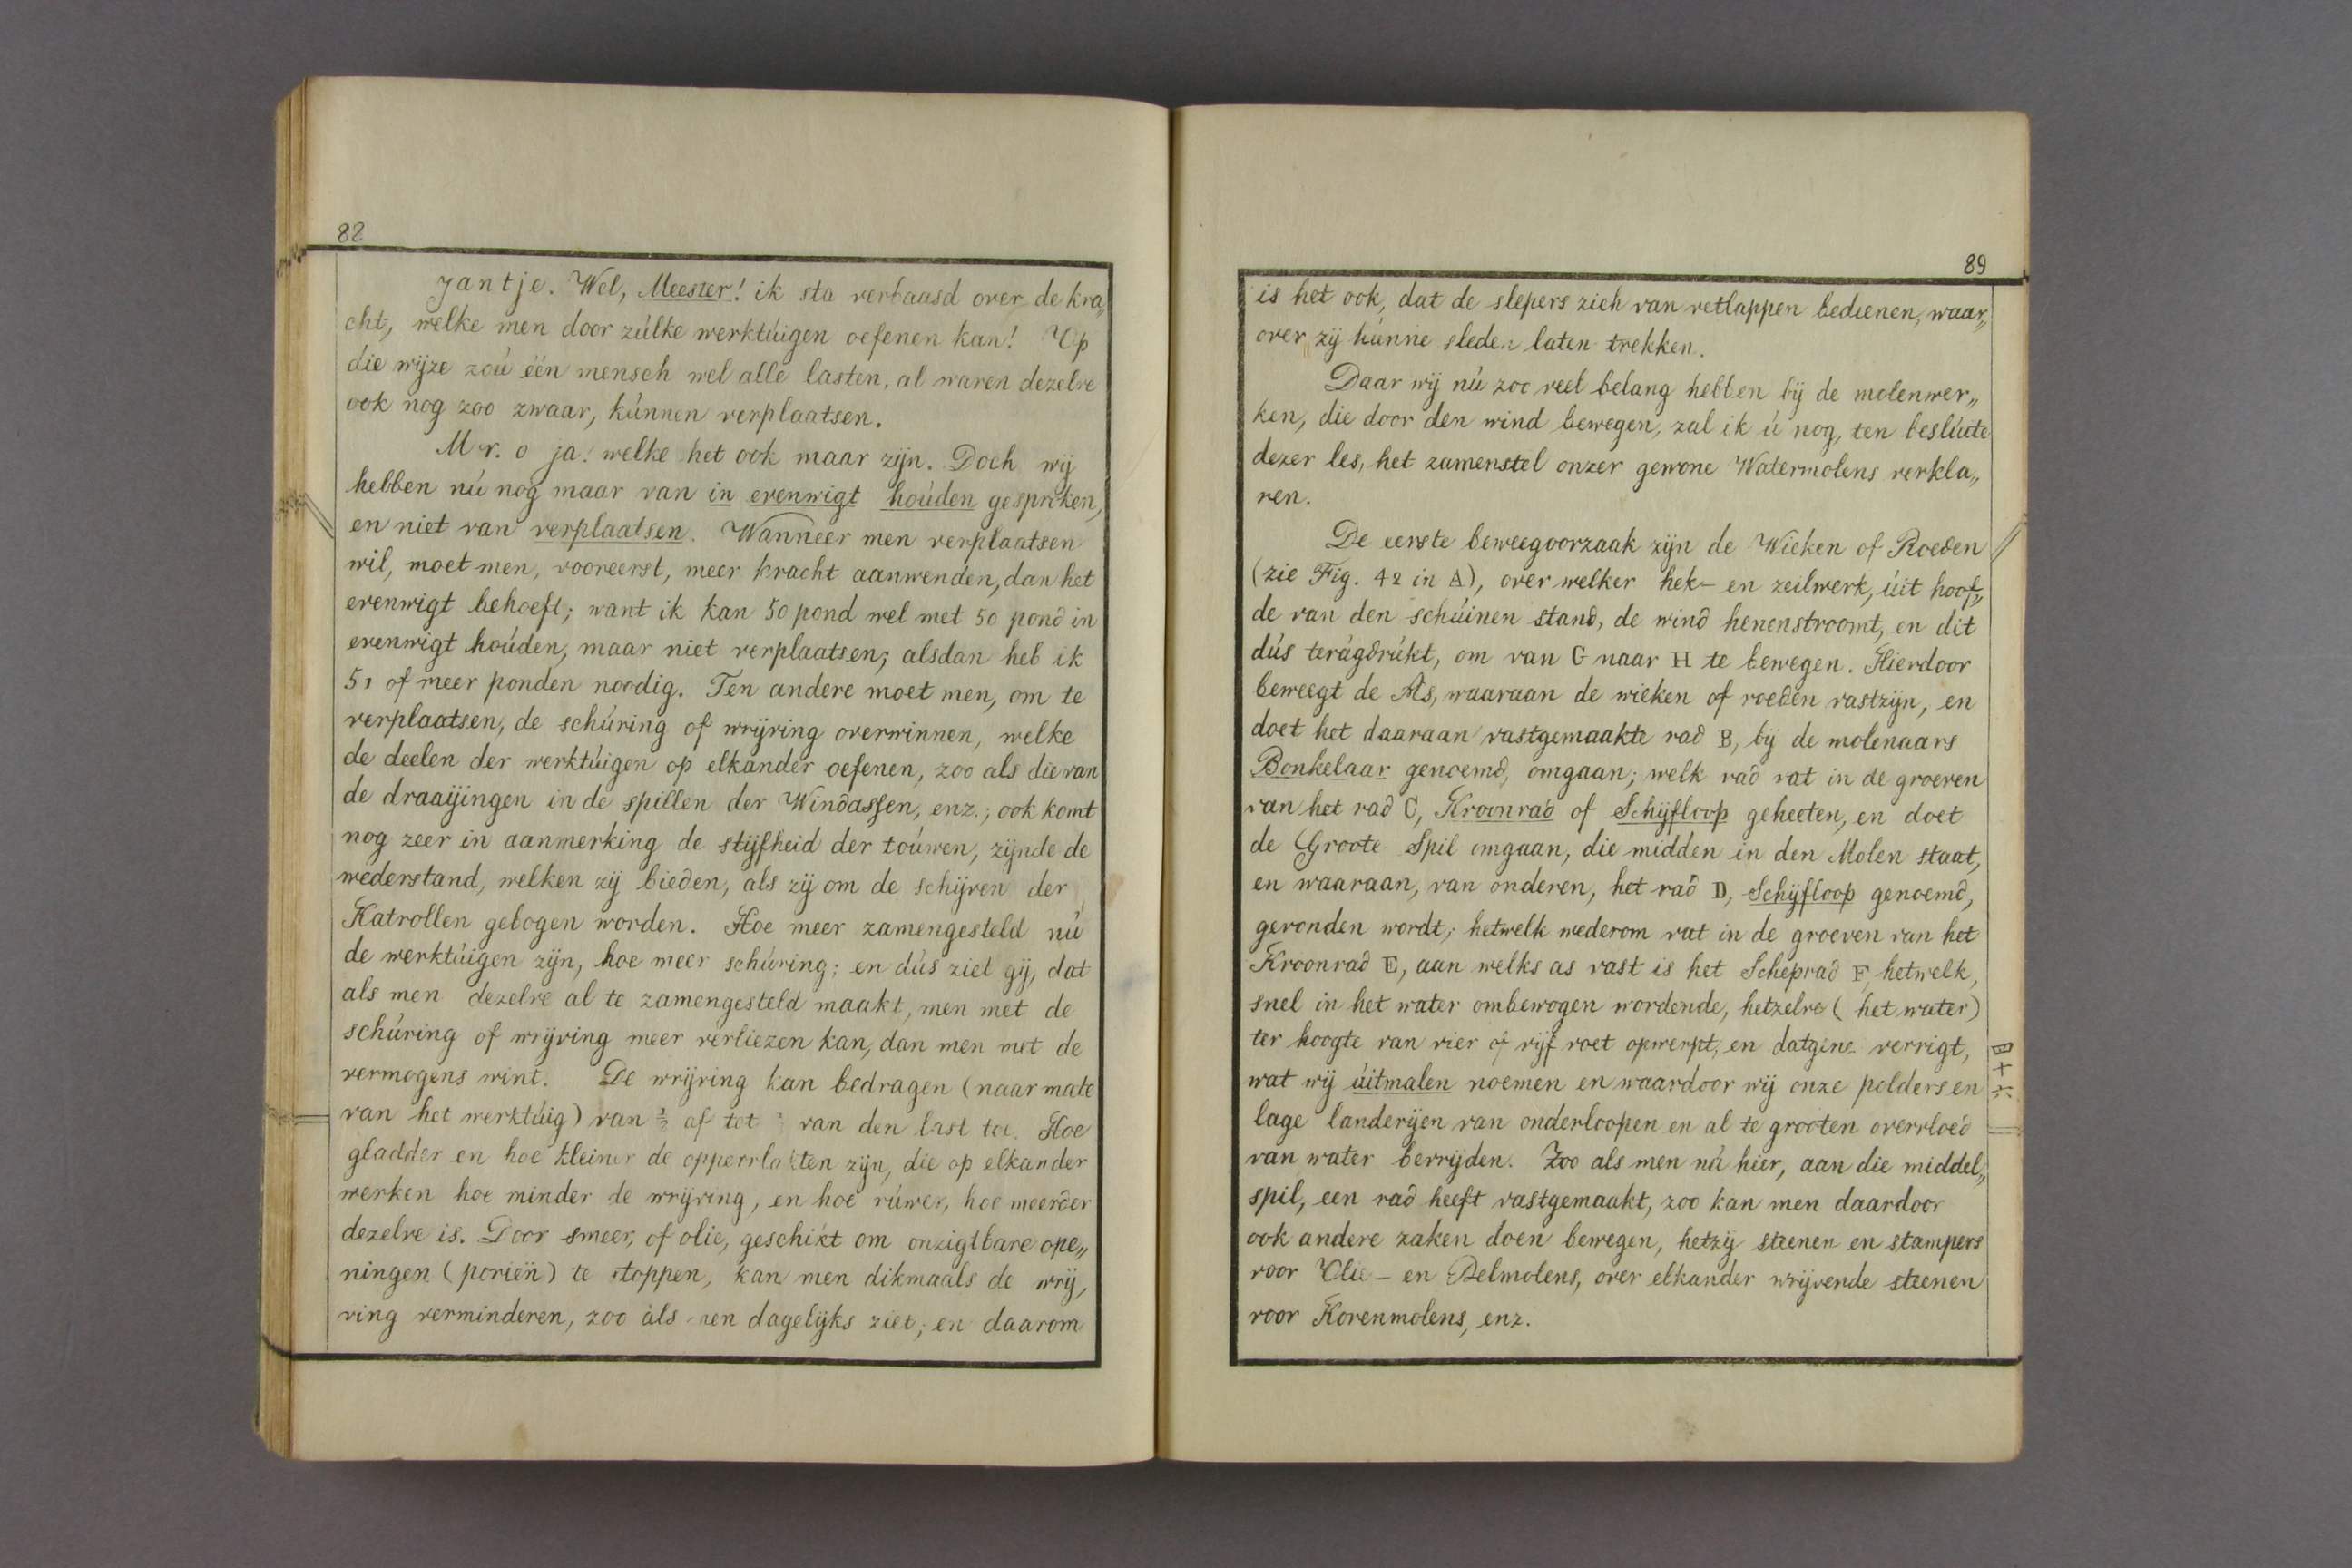 82
Jantje. Wel, Meester! ik sta verbaasd over de kra„
cht, welke men door zúlke werktúigen oefenen kan! Op
die wijze zoú één mensch wel alle lasten, al waren dezelve
ook nog zoo zwaar, kúnnen verplaatsen.
Mr. o ja! welke het ook maar zijn. Doch wij
hebben nú nog maar van in evenwigt hoúden gesproken,
en niet van verplaatsen. Wanneer men verplaatsen
wil, moet men, vooreerst, meer kracht aanwenden, dan het
evenwigt behoeft; want ik kan 50 pond wel met 50 pond in
evenwigt hoúden, maar niet verplaatsen; alsdan heb ik
51 of meer ponden noodig. Ten andere moet men, om te
verplaatsen, de schúring of wrijving overwinnen, welke
de deelen der werktúigen op elkander oefenen, zoo als die van
de draaijingen in de spillen der Windassen, enz.; ook komt
nog zeer in aanmerking de stijfheid der toúwen, zijnde de
wederstand, welken zij bieden, als zij om de schijven der
Katrollen gebogen worden. Hoe meer zamengesteld nú
de werktúigen zijn, hoe meer schúring; en dús ziet gij, dat
als men dezelve al te zamengesteld maakt, men met de
schúring of wrijving meer verliezen kan, dan men met de
vermogens wint. De wrijving kan bedragen (naar mate
van het werktúig) van af tot van den last toe. Hoe
gladder en hoe kleiner de oppervlakten zijn, die op elkander
werken hoe minder de wrijving, en hoe rúwer, hoe meerder
dezelve is. Door smeer, of olie, geschikt om onzigtbare ope„
ningen (poriën) te stoppen, kan men dikmaals de wrij„
ving verminderen, zoo als men dagelijks ziet; en daarom
89
is het ook, dat de slepers zich van vetlappen bedienen, waar„
over zij húnne sleden laten trekken.
Daar wij nú zoo veel belang hebben bij de molenwer„
ken, die door den wind bewegen, zal ik ú nog, ten beslúite
dezer les, het zamenstel onzer gewone Watermolens verkla„
ren.
De eerste beweegoorzaak zijn de Wieken of Roeden
(zie Fig. 42 in A), over welker hek- en zeilwerk, úit hoof„
de van den schúinen stand, de wind henenstroomt, en dit
dús terúgdrúkt, om van G naar H te bewegen. Hierdoor
beweegt de As, waaraan de wieken of roeden vastzijn, en
doet het daaraan vastgemaakte rad B, bij de molenaars
Bonkelaar genoemd, omgaan; welk rad vat in de groeven
van het rad C, Kroonrad of Schijfloop geheeten, en doet
de Groote Spil omgaan, die midden in den Molen staat,
en waaraan, van onderen, het rad D, Schijfloop genoemd,
gevonden wordt; hetwelk wederom vat in de groeven van het
Kroonrad E, aan welks as vast is het Scheprad F, hetwelk,
snel in het water ombewogen wordende, hetzelve (het water)
ter hoogte van vier of vijf voet opwerpt, en datgene verrigt,
wat wij úitmalen noemen en waardoor wij onze polders en
lage landerijen van onderloopen en al te grooten overvloed
van water bevrijden. Zoo als men nú hier, aan die middel„
spil, een rad heeft vastgemaakt, zoo kan men daardoor
ook andere zaken doen bewegen, hetzij steenen en stampers
voor Olie- en Pelmolens, over elkander wrijvende steenen
voor Korenmolens, enz.